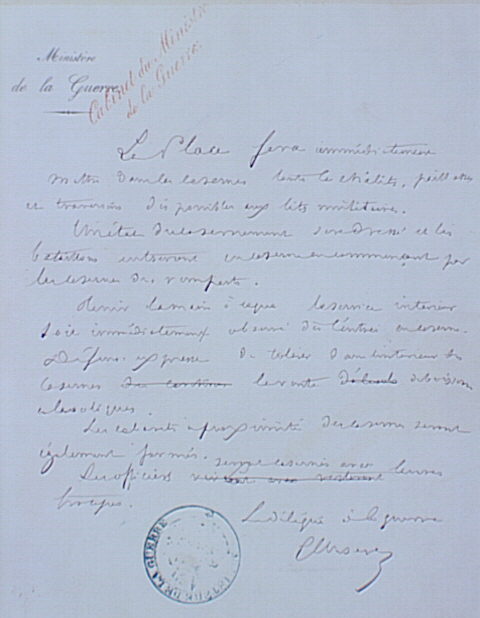 Ministère
de la Guerre
Cabinet du Ministre
de la Guerre
La Place fera immédiatement
mettre dans les casernes toute les châlits, paillasses
et traversins disponibles aux lits militaires.
Un état du casernement sera dressé et les
bataillons entreront en caserne en commençant par
les casernes des remparts.
Tenir la main à ce que le service intérieur
soit immédiatement observé dès l'entrée en caserne.
Défense expresse de tolérer dans l'intérieur des
casernes des cantines la vente de boissons
alcooliques.
Les cabarets à proximité des casernes seront
également fermés.
Les officiers seront casernés avec leurs
troupes.
Le délégué à la guerre
MINISTÈRE DE LA GUERRE